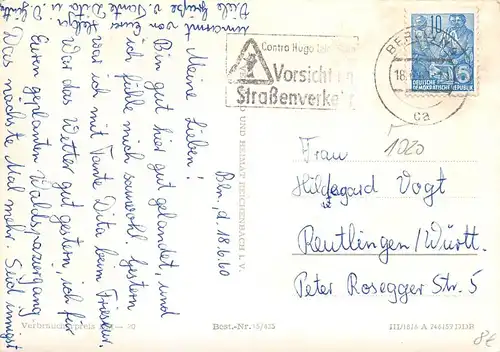 Bln., d. 18.6.60
Meine Lieben!
Bin hier gut gelandet, und
ich fühle mich sauwohl. Gestern
war ich mit Tante Dita beim Friseur.
War das Wetter gut gestern, ich für
Euren geplanten Waldspaziergang
Das nächste Mal mehr. Seid innigst
umarmt von eurer Helga
Viele Grüße v. Tante Dita u.
Contra Hugo
Vorsicht im
Straßenverkehr
BERLIN
18.
ca
10
DEUTSCHE
DEMOKRATISCHE REPUBLIK
1020
Frau
Hildegard Vogt
Reutlingen/Württ.
Peter Rosegger Str. 5
UND HEIMAT REICHENBACH I. V.
Verbraucherpreis
Best.-Nr. 15/435
III/18/6 A 746/57 DDR
8E